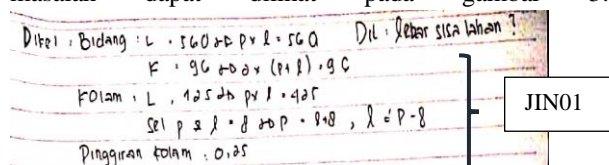 masalah dapat dilihat pada gambar 3.
Diket : Bidang : L = 560 → p x l = 560 Dit : Lebar sisa lahan ?
K = 96 → 2x (p+l) = 96
Kolam : L = 425 → p x l = 425
Sel p & l = 8 → p = l+8 , l = p-8
Pinggiran kolam : 0,25
JIN01